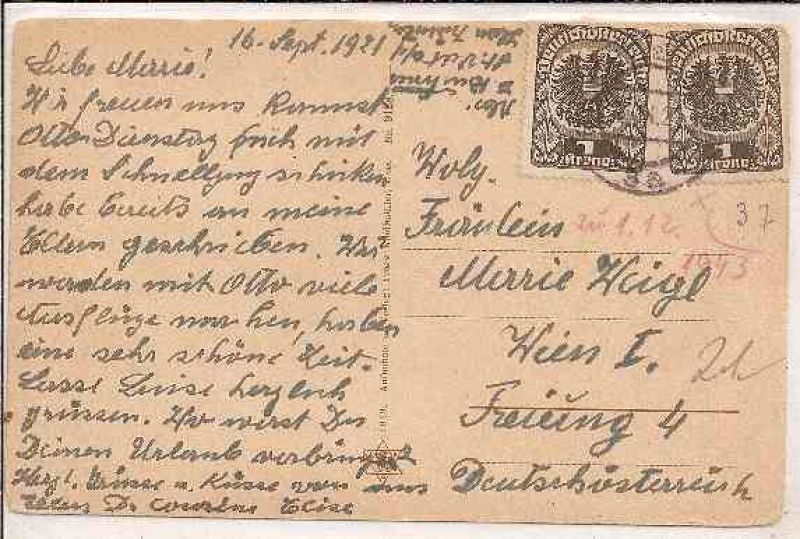 16. Sept. 1921
Liebe Marie!
Wir freuen uns kommst
Otto Dienstag früh mit
dem Schnellzug schicken
habe bereits an meine
Eltern geschrieben. Wir
werden mit Otto viele
Ausflüge machen, haben
eine sehr schöne Zeit.
Lasse Luise herzlich
grüssen. Wo wirst Du
Deinen Urlaub verbringen
Herzl. Grüsse u. Küsse von uns
Cousine Elise
Abs.
Deutschösterreich
1
Krone
Deutschösterreich
1
Krone
Wolg.
Fräulein
zu 1.12.
1943
37
Marie Weigl
Wien I.
Freiung 4
Deutschösterreich